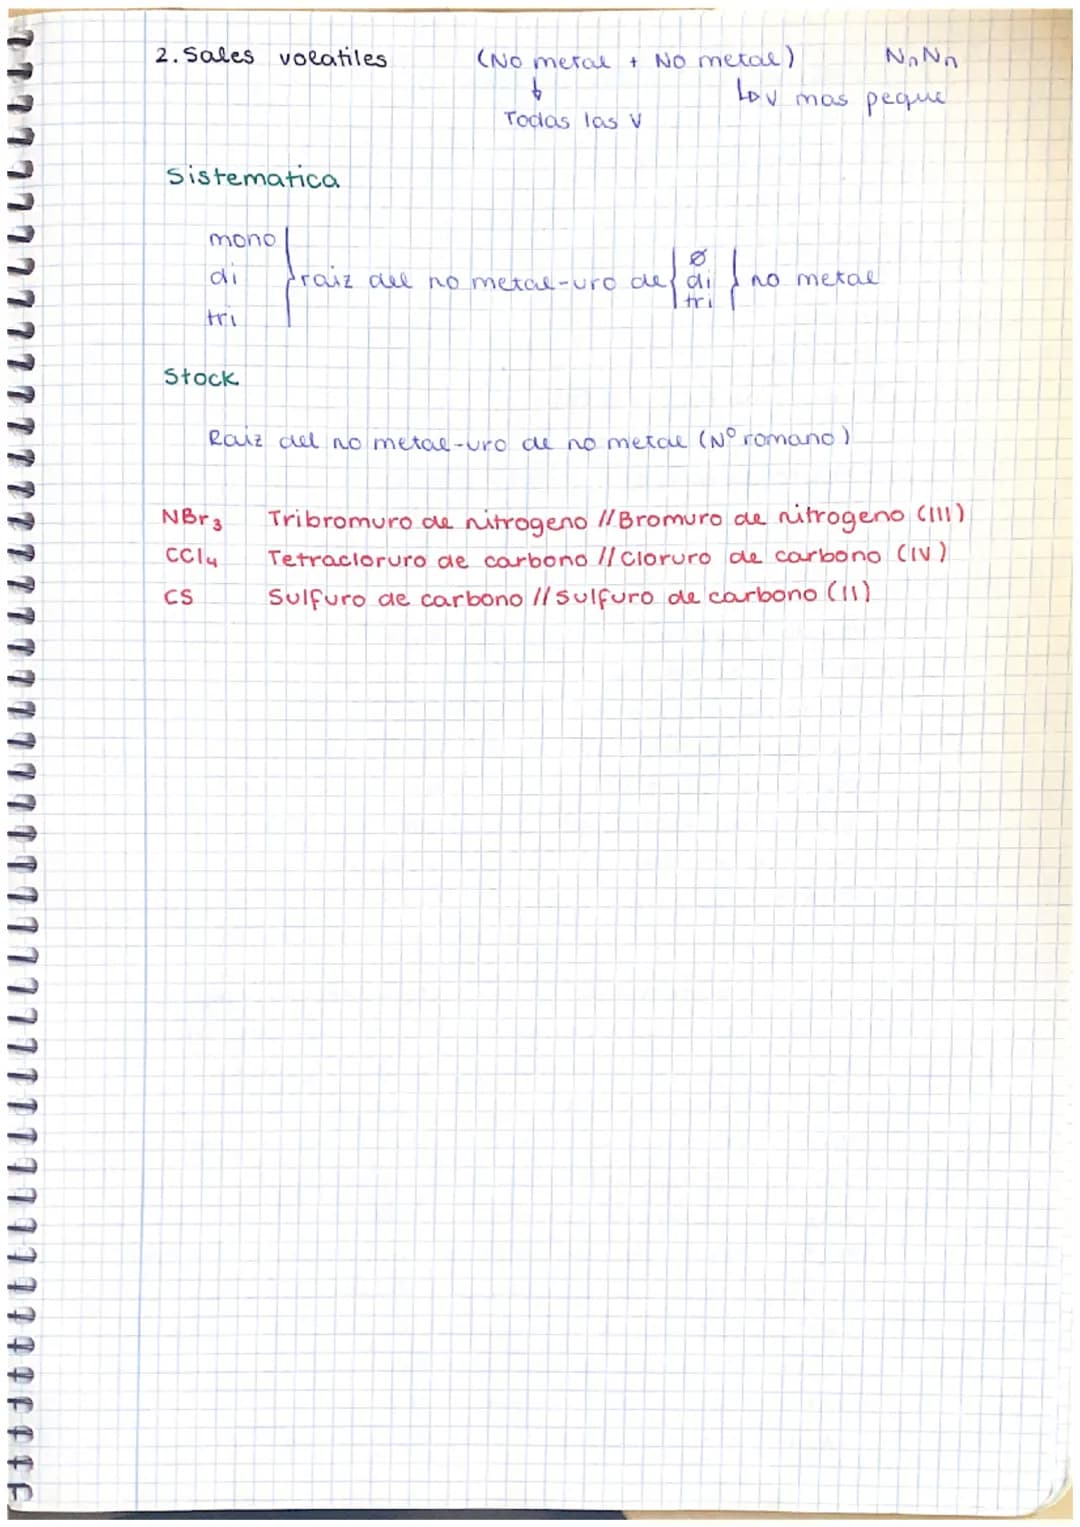 2. Sales volatiles (No metal + No metal) NnNn
↓ ↳ V mas peque
Todas las V
Sistematica
mono
di } raiz del no metal-uro de { ø di tri } no metal
tri
Stock
Raiz del no metal-uro de no metal (Nº romano)
NBr3 Tribromuro de nitrogeno // Bromuro de nitrogeno (III)
CCl4 Tetracloruro de carbono // Cloruro de carbono (IV)
CS Sulfuro de carbono // Sulfuro de carbono (II)